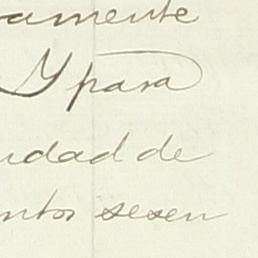 amente
Y para
udad de
ntos sesen